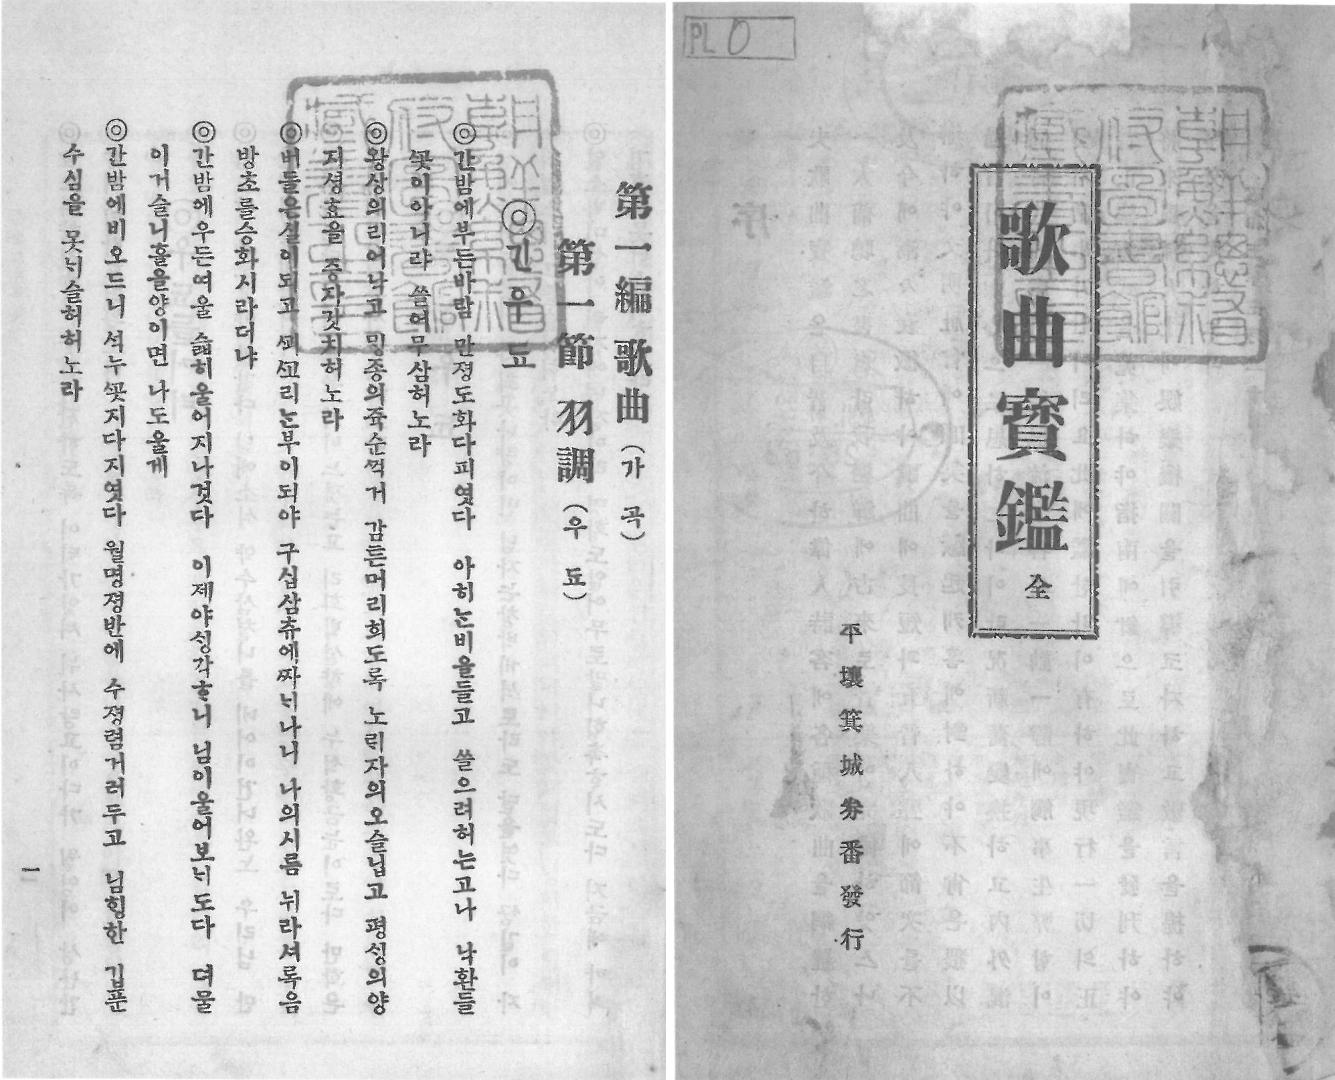 PL 0
歌曲寶鑑 全
平壤箕城券番發行
第一編 歌曲 (가곡)
第一節 羽調 (우됴)
◎긴우됴
◎간밤에부든바람 만졍도화다피엿다 아희는비을들고 쓸으려허는고나 낙환들
꼿이아니랴 쓸여무삼허노라
◎왕상의리어나고 밍종의쥭순꺽거 감든머리희도록 노릭자의오슬닙고 평싱의양
지셩효을 증자갓치허노라
◎버들은실이되고 꾀꼬리는부이되야 구십삼츈에짜닉나니 나의시름 뉘라셔록음
방초를승화시라더냐
◎간밤에우든여울 슯히울어지나것다 이제야싱각하니 님이울어보닉도다 뎌물
이거슬니흘을양이면 나도울게
◎간밤에비오드니 셕누꼿지다지엿다 월명졍반에 수졍렴거러두고 님힝한 깁푼
수심을 못닉슬허허노라
一